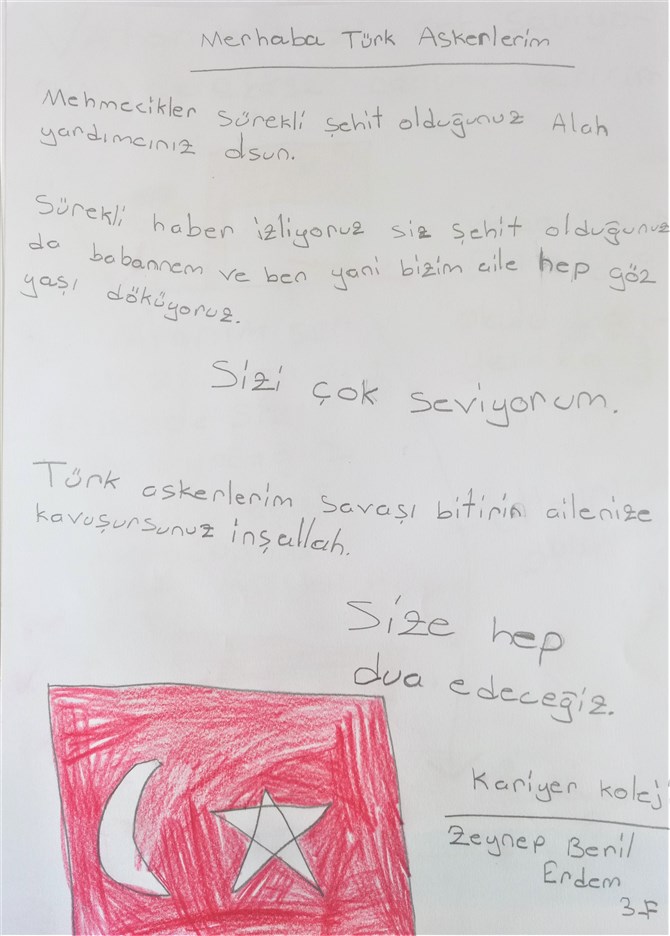 Merhaba Türk Askerlerim
Mehmecikler sürekli şehit olduğunuz Alah
yardımcınız olsun.
Sürekli haber izliyoruz siz şehit olduğunuz
da babannem ve ben yani bizim aile hep göz
yaşı döküyoruz.
Sizi çok seviyorum.
Türk askerlerim savaşı bitirin ailenize
kavuşursunuz inşallah.
Size hep
dua edeceğiz.
Kariyer koleji
Zeynep Beril
Erdem
3-F